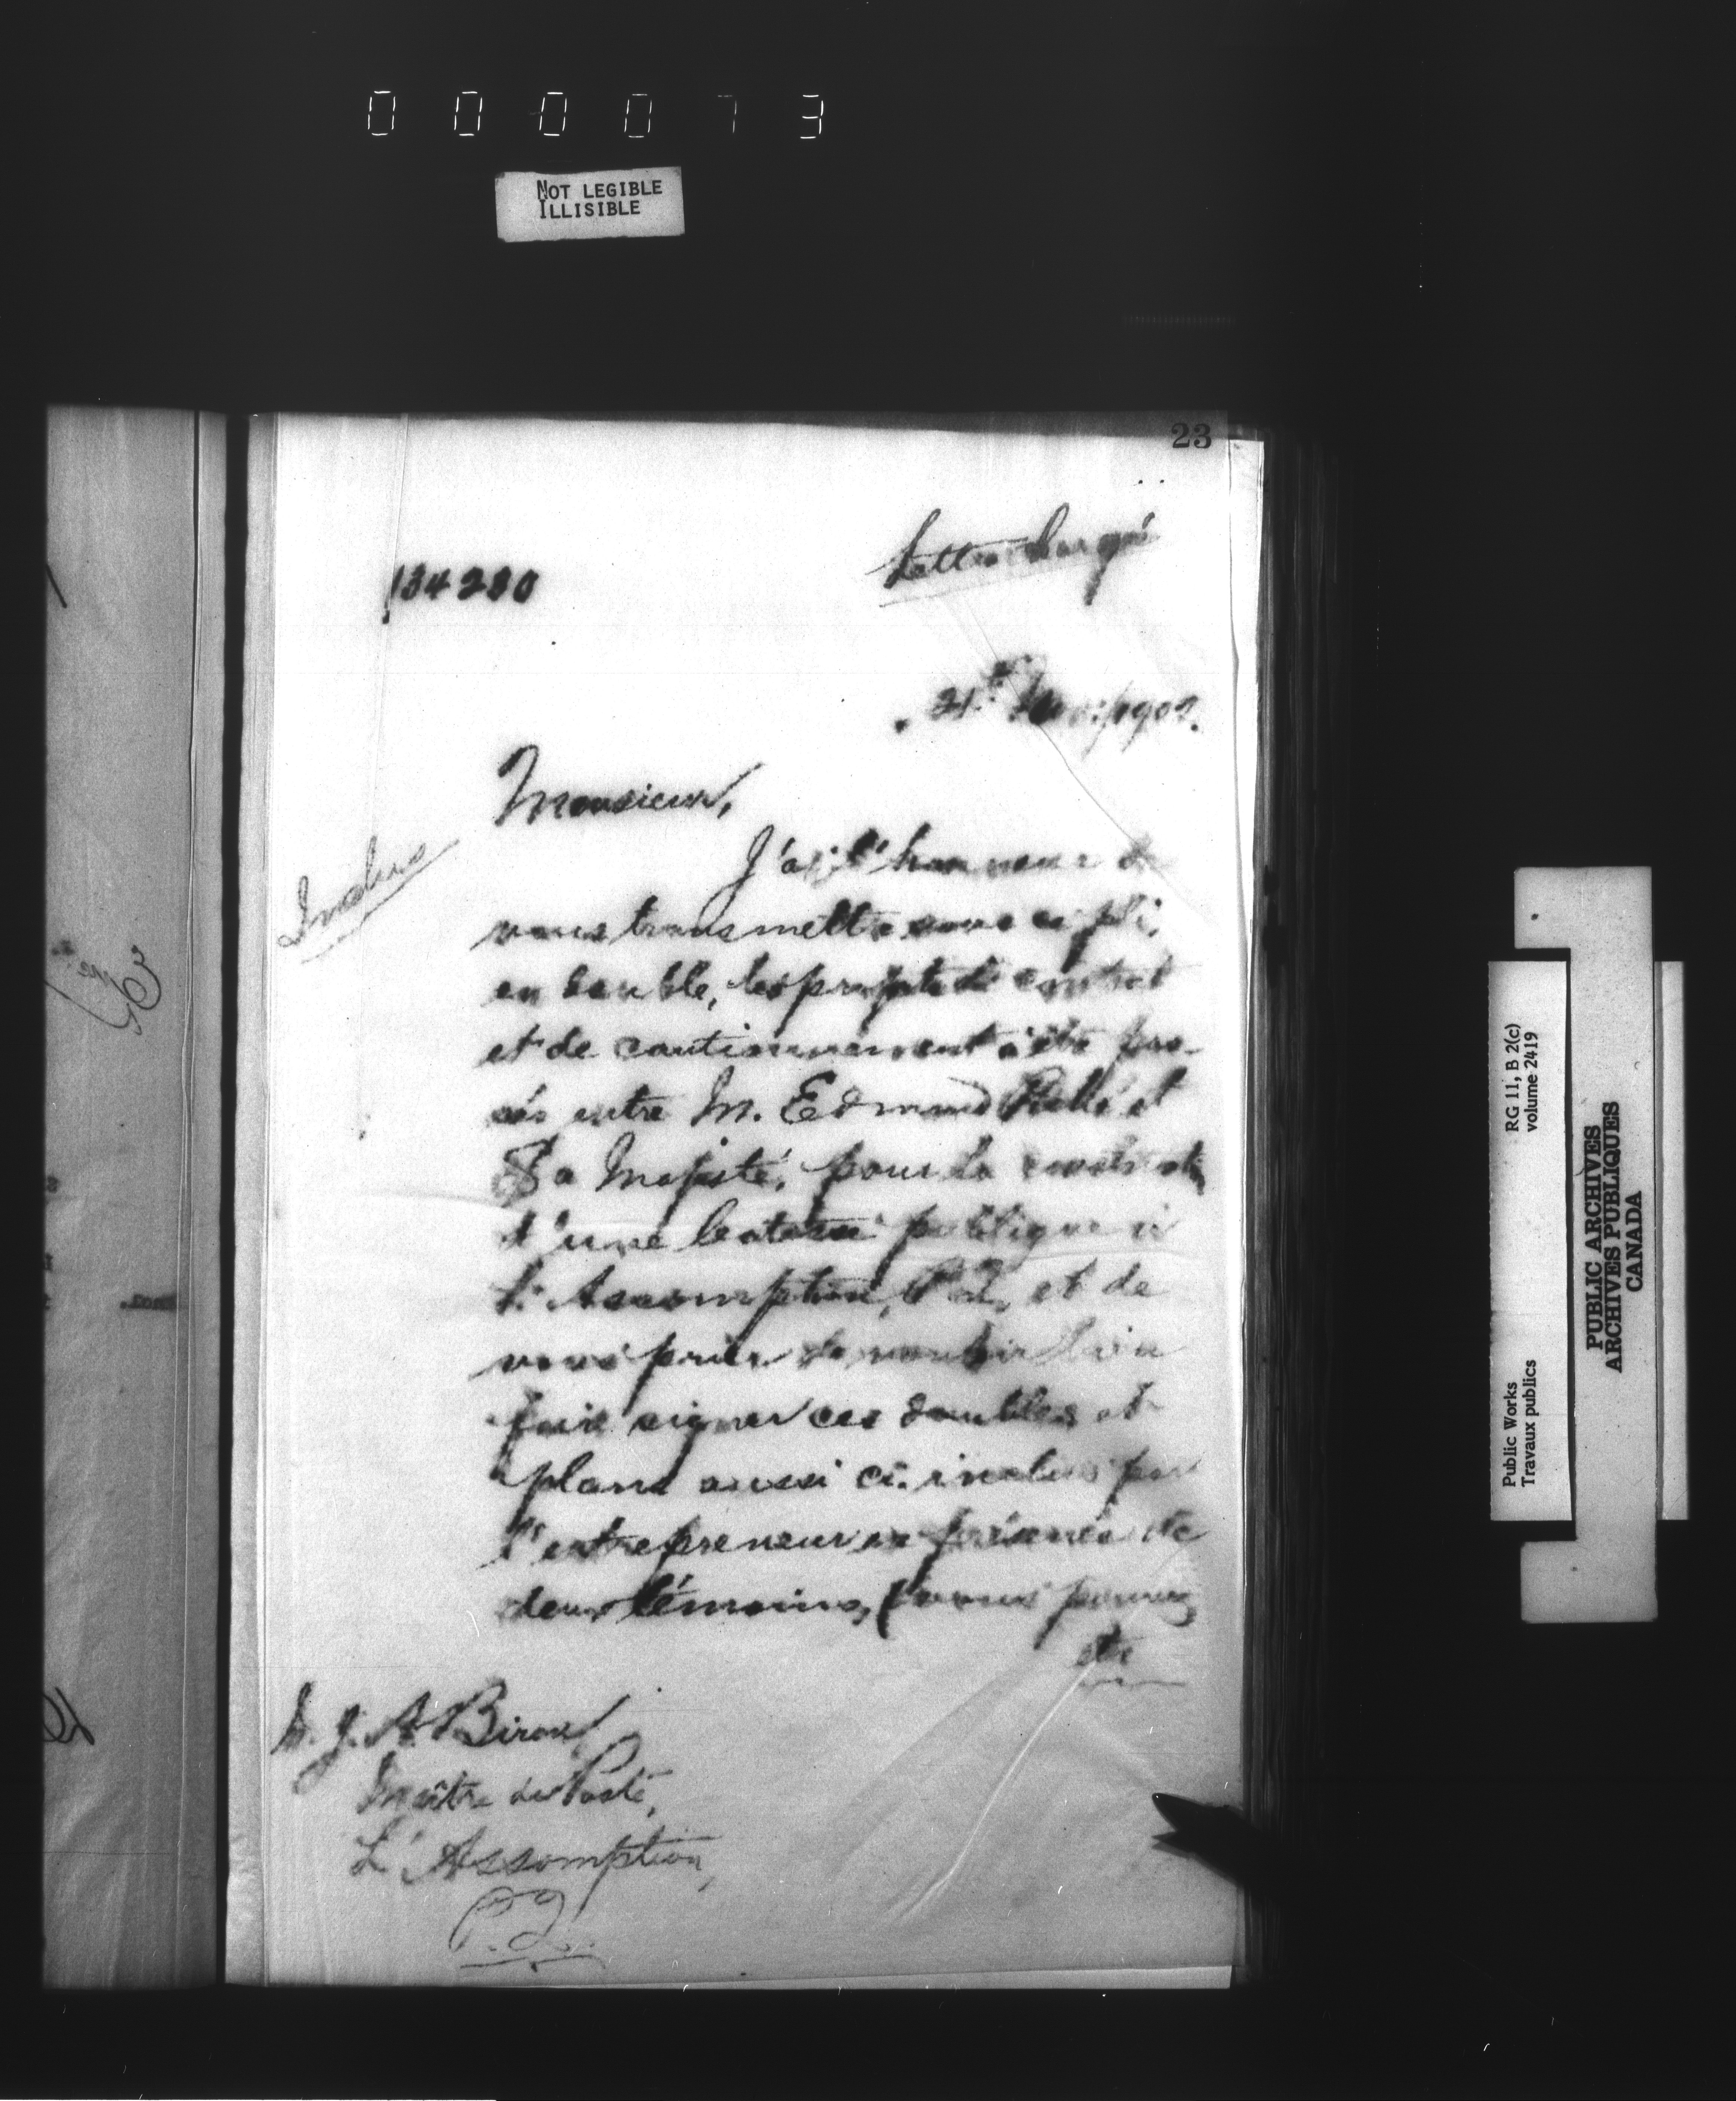 000073
NOT LEGIBLE
ILLISIBLE
23
134280
Lettre chargé
21 1902.
Monsieur,
Inclus
J'ai l'honneur de
vous transmettre sous ce pli,
en double, les projets de contrat
et de cautionnement à être pas-
sés entre M. Edmond et
Sa Majesté, pour la
d'une batisse publique à
L'Assomption, P.Q., et de
vous prier de vouloir bien
faire signer ces doubles et
plans aussi ci-inclus par
l'entrepreneur en présence de
deux témoins, (vous pouvez
etre
M. J. A. Biron
Maître de Poste,
L'Assomption,
P.Q.
Public Works
Travaux publics
RG 11, B 2(c)
volume 2419
PUBLIC ARCHIVES
ARCHIVES PUBLIQUES
CANADA